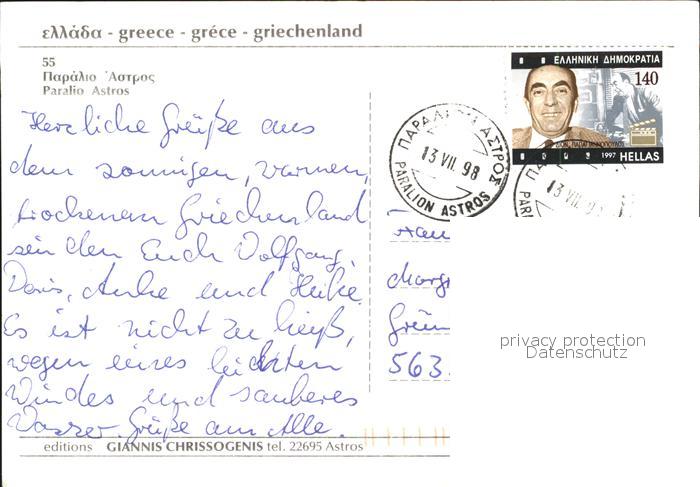 ελλάδα - greece - gréce - griechenland
55
Παράλιο Ἄστρος
Paralio Astros
ΕΛΛΗΝΙΚΗ ΔΗΜΟΚΡΑΤΙΑ
140
1997 HELLAS
ΠΑΡΑΛΙ ΑΣΤΡΟΣ
13 VII. 98
PARALION ASTROS
13 VII. 9
PAR
Herzliche Grüße aus
dem sonnigen, warmen,
trockenem Griechenland
senden Euch Wolfgang,
Doris, Anke und Heike.
Es ist nicht zu heiß,
wegen eines leichten
Windes und sauberes
Wasser. Grüße an Alle.
Fam
Marg
Grün
563.
privacy protection
Datenschutz
editions GIANNIS CHRISSOGENIS tel. 22695 Astros